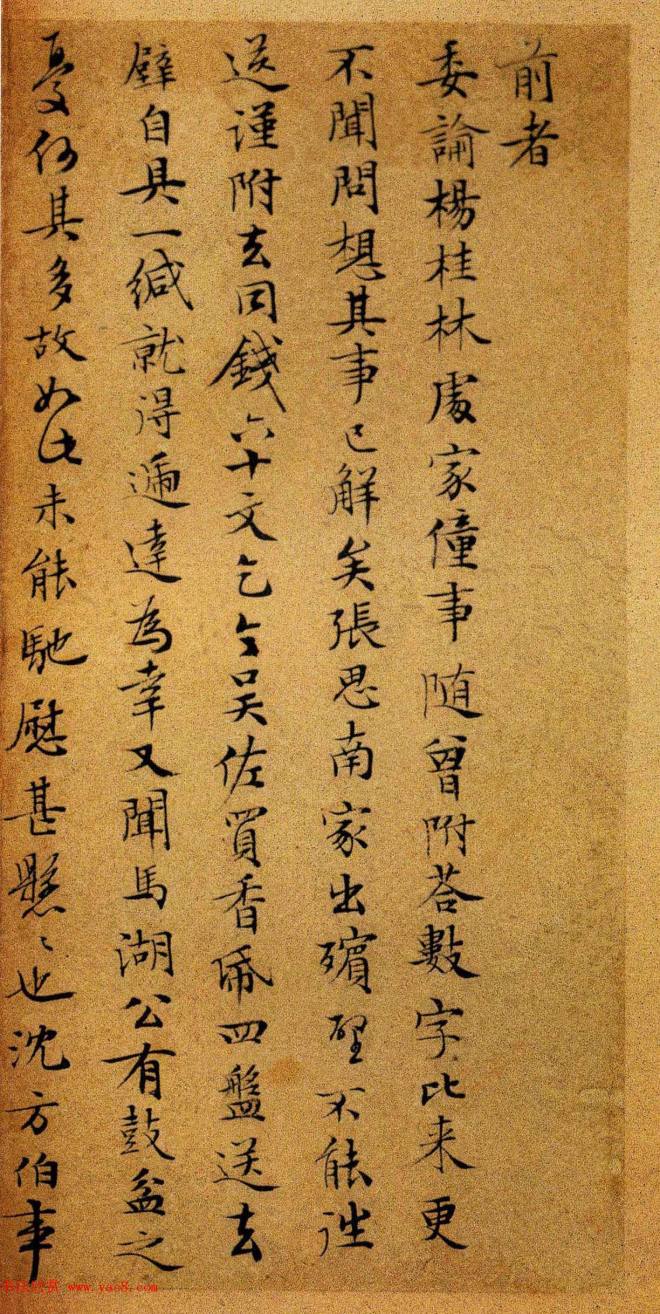 前者
委論楊桂林處家僮事随曾附荅數字比来更
不聞問想其事已解矣張思南家出殯璧不能詣
送謹附去同錢六十文乞令吴佐買香帋四盤送去
璧自具一緘就得遞達為幸又聞馬湖公有鼓盆之
憂何其多故如此未能馳慰甚懸〻也沈方伯事
www.yac8.com